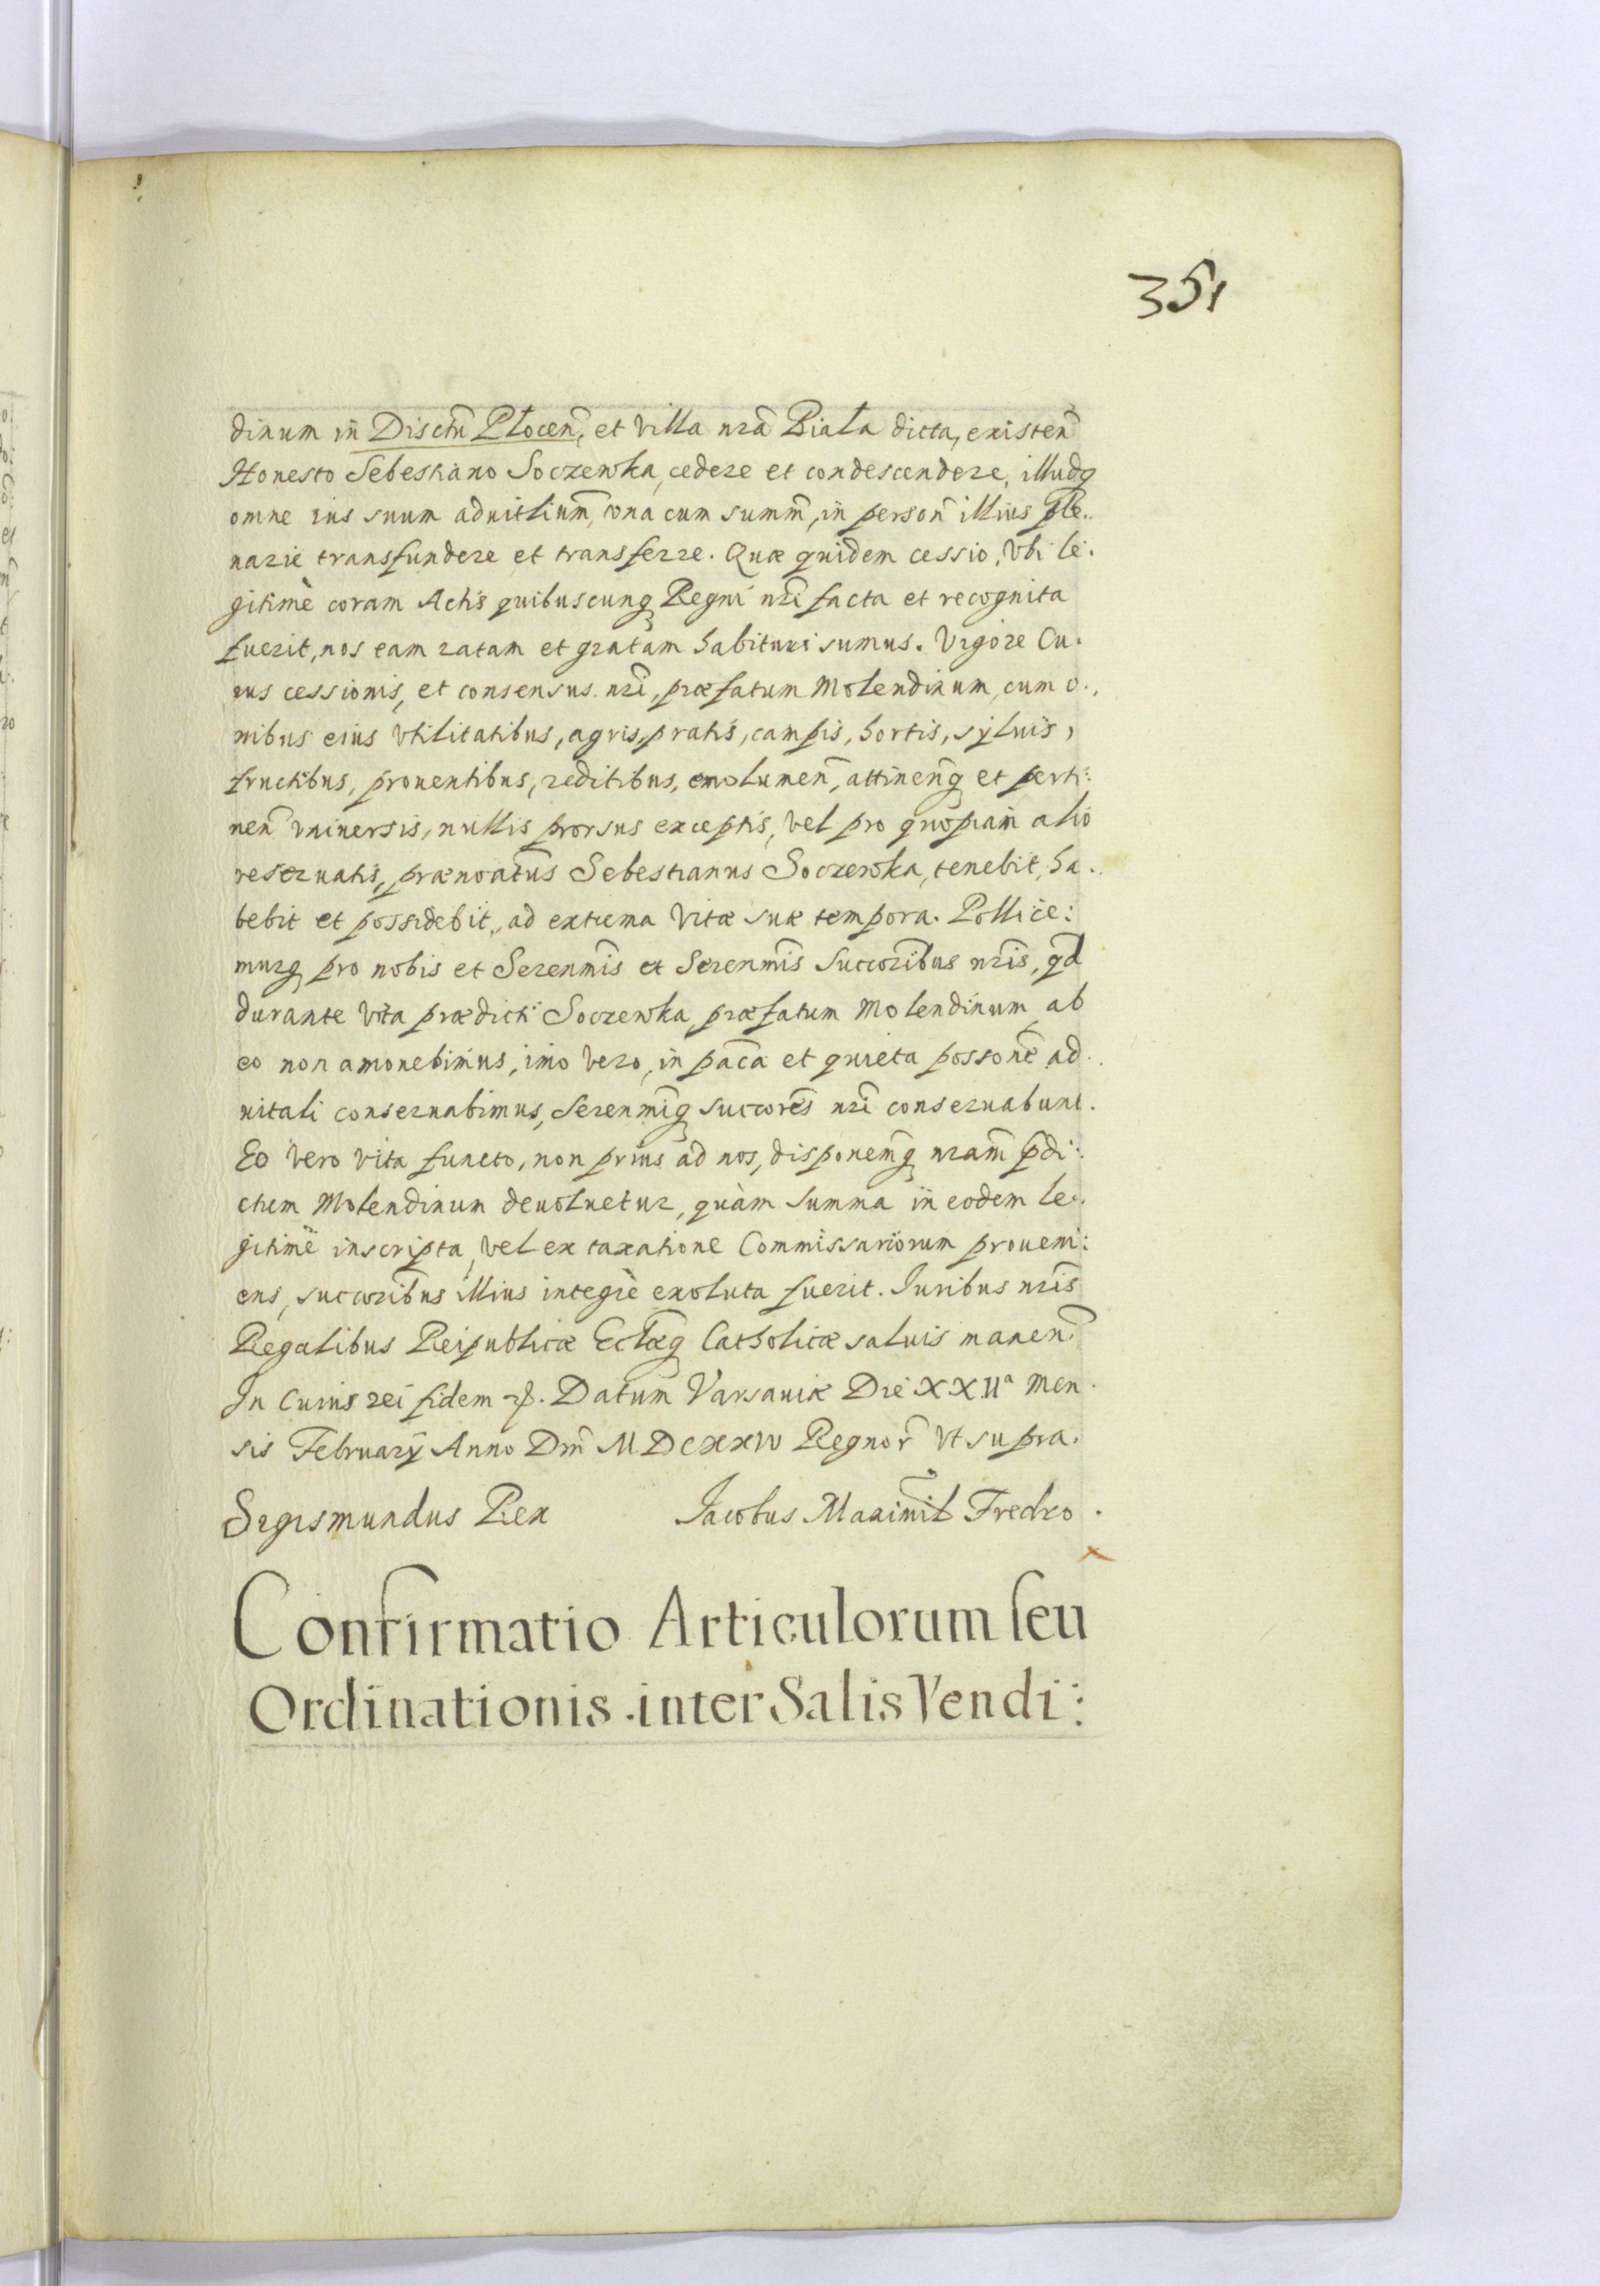 351
dinum in Disctũ Płocen̄, et villa nrã Biała dicta, existen̄
Honesto Sebestiano Soczewka, cedere et condescendere, illudq̃
omne ius suum aduitliũm, vna cum summ̃, in person̄ illius ple..
narie transfundere et transferre. Quæ quidem cessio, vbi le.
gitimè coram Actis quibuscunq̃ Regni nrĩ facta et recognita
fuerit, nos eam ratam et gratam habituri sumus. Vigore Cu.
ius cessionis, et consensus nrĩ, præfatum Molendinum, cum o.,
nibus eius vtilitatibus, agris, pratis, campis, hortis, syluis,
fructibus, prouentibus, reditibus, emolumen̄, attinen̄q̃ et perti:
nen̄ vniuersis, nullis prorsus exceptis, vel pro quopiam alio
reseruatis, prænoãtus Sebestianus Soczewka, tenebit, ha.
bebit et possidebit, ad extrema vitæ suæ tempora. Pollice:
murq̃ pro nobis et Serenm̃is et Serenm̃is Succorĩbus nrĩs, qđ
durante vita prædicti Soczewka præfatum Molendinum ab
eo non amouebimus, imo vero, in pacã et quieta possonẽ ad.
uitali conseruabimus, Serenm̃iq̃ succorẽs nrĩ conseruabunt.
Eo vero vita functo, non prius ad nos, disponem̃q̃ nram̃ p̃di:
ctum Molendinum deuoluetur, quàm summa in eodem le.
gitimè inscripta, vel ex taxatione Commissariorum proueni:
ens, succorĩbus illius integrè exoluta fuerit. Iuribus nrĩs
Regalibus Reipublicæ Ecclæ̃q̃ Catholicæ saluis manen̄.
In Cuius rei fidem etc. Datum Varsauiæ Die XXIIª Men.
sis Februarij Anno Dnĩ MDCXXIV Regnor̃ vt supra.
Sigismundus Rex Jacobus Maximil̃ Fredro.
Confirmatio Articulorum seu
Ordinationis inter Salis Vendi: